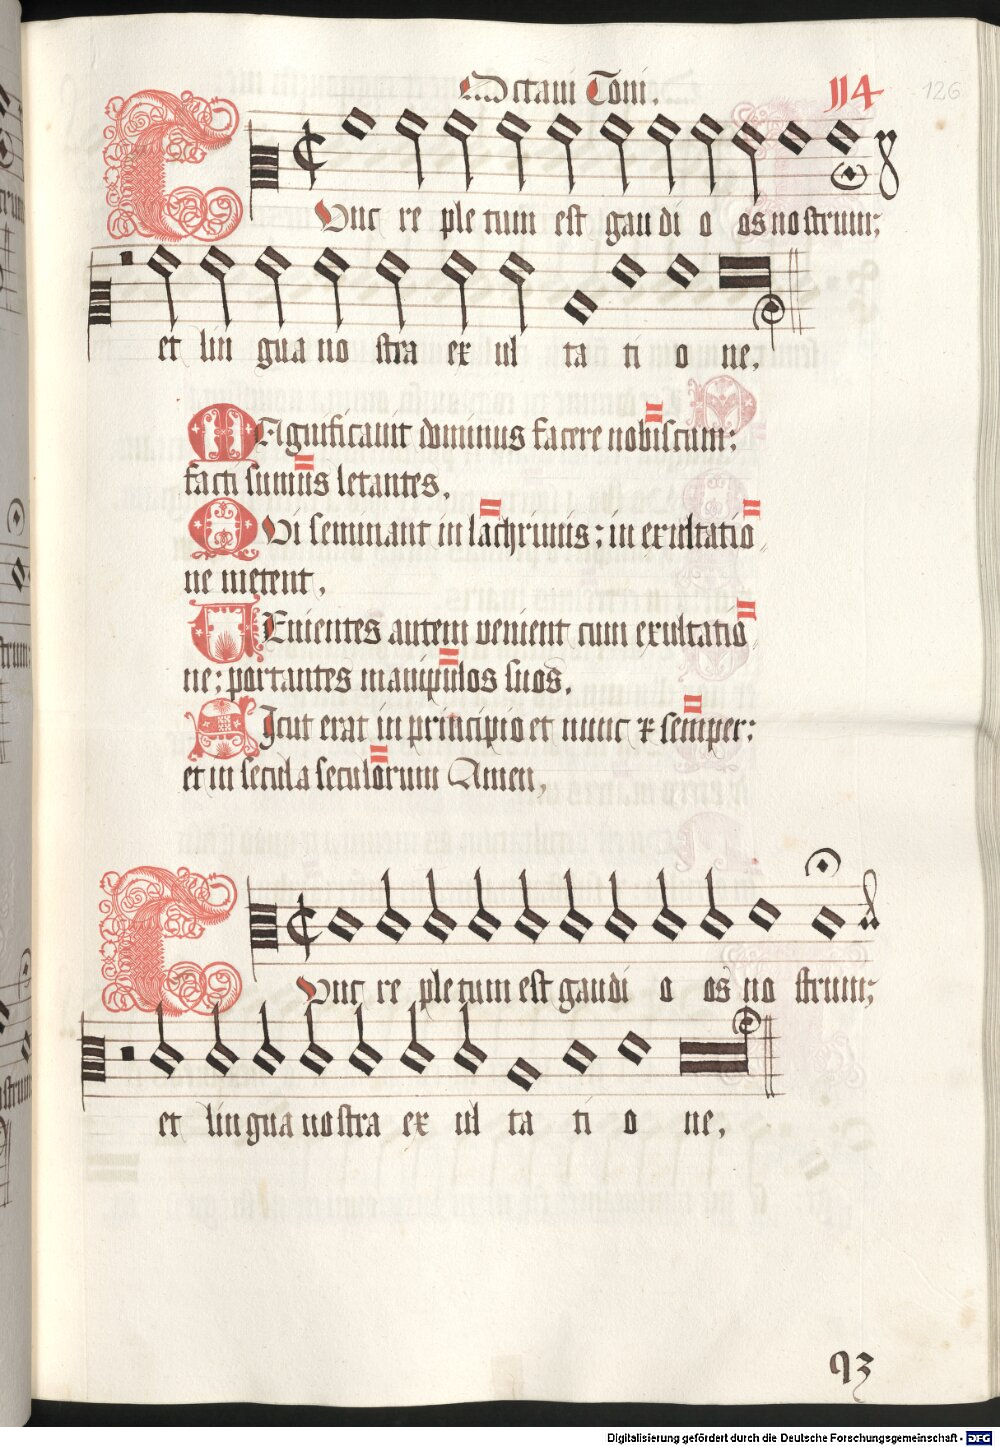 Octaui Toni.
114
126
Tunc re ple tum est gau di o os no strum;
et lin gua no stra ex ul ta ti o ne.
MAgnificauit dominus facere nobiscum;
facti sumus letantes.
QVi seminant in lachrimis; in exultatio
ne metent.
VEnientes autem venient cum exultatio
ne; portantes manipulos suos.
SIcut erat in principio et nunc & semper;
et in secula seculorum Amen.
Tunc re ple tum est gau di o os no strum;
et lin gua no stra ex ul ta ti o ne.
93
Digitalisierung gefördert durch die Deutsche Forschungsgemeinschaft - DFG